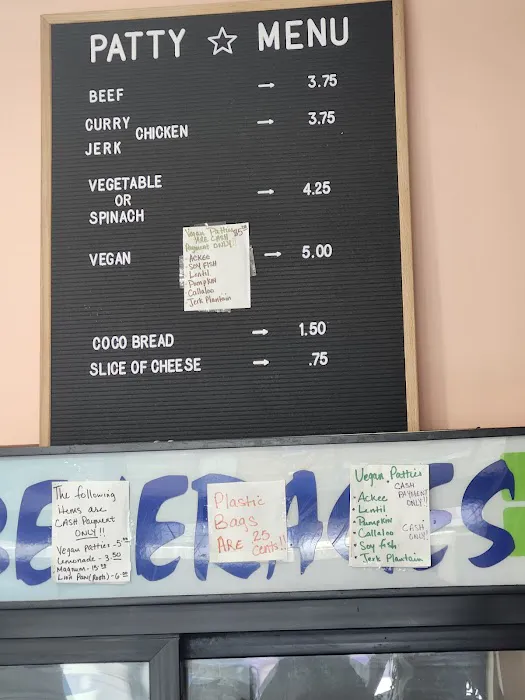 PATTY ☆ MENU
BEEF → 3.75
CURRY CHICKEN → 3.75
JERK
VEGETABLE
OR → 4.25
SPINACH
Vegan Patties 5.00
ARE CASH
Payment ONLY!!
VEGAN → 5.00
- Ackee
- Soy FISH
- Lentil
- Pumpkin
- Callaloo
- Jerk Plantain
COCO BREAD → 1.50
SLICE OF CHEESE → .75
BEVERAGES
The following
items are
CASH Payment
ONLY!!
Vegan patties - 5.00
Lemonade - 3.50
Magnum -
Lion Paw (Roots) - 6.00
Plastic
Bags
ARE 25
Cents!!
Vegan Patties
CASH
PAYMENT
ONLY!!
• Ackee
• Lentil
• Pumpkin
• Callaloo
• Soy fish
• Jerk Plantain
CASH
ONLY